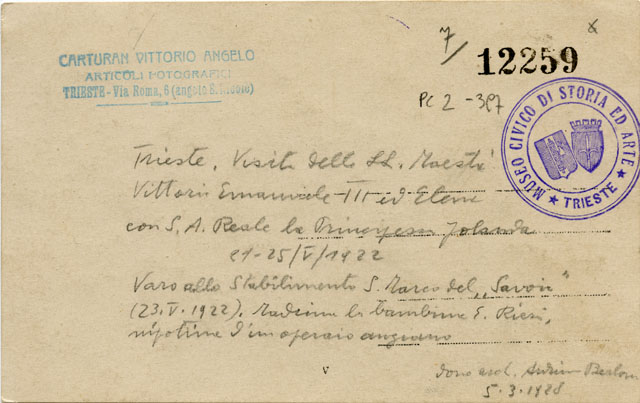 CARTURAN VITTORIO ANGELO
ARTICOLI FOTOGRAFICI
TRIESTE - Via Roma, 6 (angolo S. Nicolò)
7/
12259
PC 2 - 387
MUSEO CIVICO DI STORIA ED ARTE
★ TRIESTE ★
Trieste, Visita delle LL. Maestà
Vittorio Emanuele III ed Elena
con S. A. Reale la Principessa Jolanda
21-25/V/1922
Varo allo Stabilimento S. Marco del „Savoia"
(23.V.1922). Madrina la bambina E.
nipotina d'un operaio anziano
V
Dono
5.3.1928